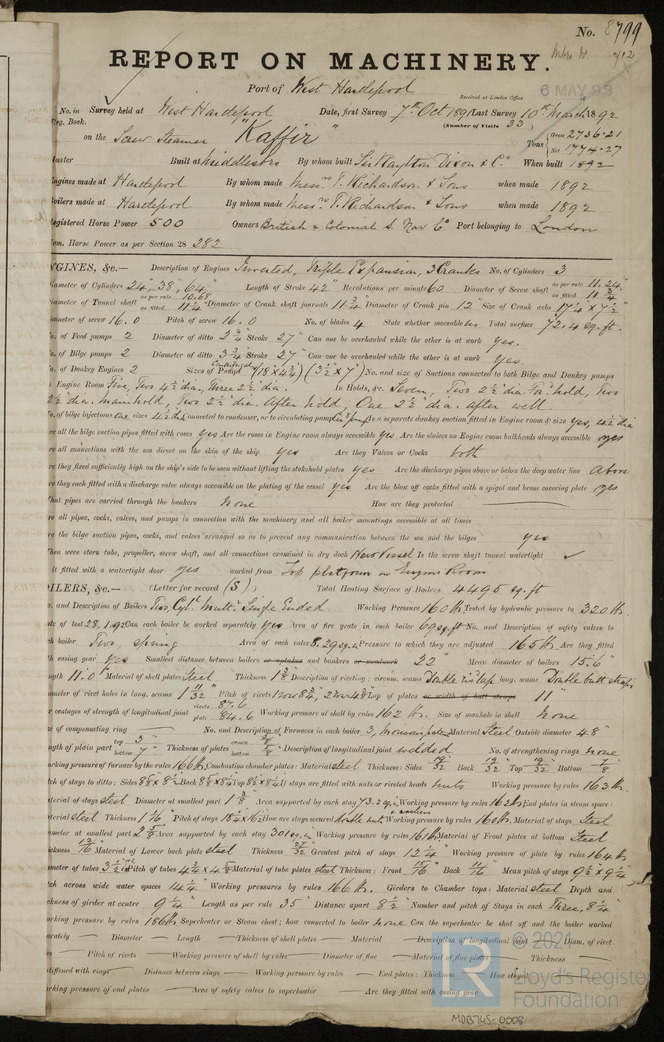 No. 8799
REPORT ON MACHINERY.
Port of West Hartlepool
Received at London Office
6 MAY 92
No. in Survey held at West Hartlepool Date, first Survey 7th Oct 1891 Last Survey 10th March 1892
Reg. Book. (Number of Visits 33)
on the Screw Steamer "Kaffir" Tons Gross 2736.21 Net 1774.27
Master Built at Middlesbro By whom built Sir Raylton Dixon & Co When built 1892
Engines made at Hartlepool By whom made Messrs T. Richardson & Sons when made 1892
Boilers made at Hartlepool By whom made Messrs T. Richardson & Sons when made 1892
Registered Horse Power 500 Owners British & Colonial S. Nav Co Port belonging to London
Nom. Horse Power as per Section 28 282
ENGINES, &c.— Description of Engines Inverted, Triple Expansion, 3 Cranks No. of Cylinders 3
Diameter of Cylinders 24", 38", 64" Length of Stroke 42" Revolutions per minute 60 Diameter of Screw shaft as per rule 11.24" as fitted 11 3/4"
Diameter of Tunnel shaft as per rule 10.68 as fitted 11 1/4" Diameter of Crank shaft journals 11 3/4" Diameter of Crank pin 12" Size of Crank webs 17 1/4" x 7 1/2"
Diameter of screw 16.0 Pitch of screw 16.0 No. of blades 4 State whether moveable no Total surface 72.4 sq. ft.
No. of Feed pumps 2 Diameter of ditto 2 3/4" Stroke 27" Can one be overhauled while the other is at work yes.
No. of Bilge pumps 2 Diameter of ditto 3 3/4" Stroke 27" Can one be overhauled while the other is at work yes.
No. of Donkey Engines 2 Sizes of Pumps (3 1/2 x 7") No. and size of Suctions connected to both Bilge and Donkey pumps
In Engine Room Five, Two 4 1/2" dia, Three 2 1/2" dia. In Holds, &c. Seven, Two 2 1/2" dia. Fore hold, Two
2 1/2" dia. Main hold, Two 2 1/2" dia. After hold, One 2 1/2" dia. After well.
No. of bilge injections one sizes 4 1/2" dia Connected to condenser, or to circulating pump pump Is a separate donkey suction fitted in Engine room & size yes, 4 1/2" dia
Are all the bilge suction pipes fitted with roses yes Are the roses in Engine room always accessible yes Are the sluices on Engine room bulkheads always accessible yes
Are all connections with the sea direct on the skin of the ship yes Are they Valves or Cocks both
Are they fixed sufficiently high on the ship's side to be seen without lifting the stokehold plates yes Are the discharge pipes above or below the deep water line above
Are they each fitted with a discharge valve always accessible on the plating of the vessel yes Are the blow off cocks fitted with a spigot and brass covering plate yes
What pipes are carried through the bunkers None How are they protected
Are all pipes, cocks, valves, and pumps in connection with the machinery and all boiler mountings accessible at all times
Are the bilge suction pipes, cocks, and valves arranged so as to prevent any communication between the sea and the bilges yes
When were stern tube, propeller, screw shaft, and all connections examined in dry dock New Vessel Is the screw shaft tunnel watertight ✓
Is it fitted with a watertight door yes worked from Top platform in Engine Room
BOILERS, &c.— (Letter for record (S)) Total Heating Surface of Boilers 4495 sq. ft
No. and Description of Boilers Two, Cyl. Multi. Single Ended. Working Pressure 160 lb. Tested by hydraulic pressure to 320 lb.
Date of test 28.1.92 Can each boiler be worked separately yes Area of fire grate in each boiler 69 sq. ft No. and Description of safety valves to
each boiler Two, spring Area of each valve 8.29 sq. in Pressure to which they are adjusted 165 lb. Are they fitted
with easing gear yes Smallest distance between boilers or uptakes and bunkers or woodwork 22" Mean diameter of boilers 15'.6"
Length 11.0" Material of shell plates Steel Thickness 1 Description of riveting: circum. seams Double riv. lap long. seams Double butt straps
Diameter of rivet holes in long. seams 1 11/32 Pitch of rivets Lap of plates or width of butt straps 11"
Percentages of strength of longitudinal joint rivets 87.6 plate 84.6 Working pressure of shell by rules 162 lb. Size of manhole in shell None
Size of compensating ring No. and Description of Furnaces in each boiler 3, Material Steel Outside diameter 48"
Length of plain part top 3" bottom 7" Thickness of plates crown bottom Description of longitudinal joint welded No. of strengthening rings none
Working pressure of furnace by the rules 166 lb Combustion chamber plates: Material steel Thickness: Sides 19/32 Back 19/32 Top 19/32 Bottom 7/8
Pitch of stays to ditto: Sides Back Top If stays are fitted with nuts or riveted heads nuts Working pressure by rules 163 lb.
Material of stays steel Diameter at smallest part 1 3/8" Area supported by each stay 73.2 sq. in Working pressure by rules 162 lb End plates in steam space:
Material steel Thickness Pitch of stays How are stays secured double nuts Working pressure by rules 160 lb. Material of stays Steel
Diameter at smallest part Area supported by each stay 301 sq. in Working pressure by rules 161 lb Material of Front plates at bottom Steel
Thickness 13/16 Material of Lower back plate steel Thickness 27/32 Greatest pitch of stays 12 1/4" Working pressure of plate by rules 164 lb
Diameter of tubes 3 1/2" Pitch of tubes Material of tube plates steel Thickness: Front Back Mean pitch of stays 9 1/2 x 9 1/4
Pitch across wide water spaces 14 1/4" Working pressures by rules 166 lb. Girders to Chamber tops: Material steel Depth and
thickness of girder at centre 9 1/4" Length as per rule 35" Distance apart 8 1/2" Number and pitch of Stays in each Three, 8 1/4"
Working pressure by rules 186 lb Superheater or Steam chest; how connected to boiler None Can the superheater be shut off and the boiler worked
separately Diameter Length Thickness of shell plates Material Description of longitudinal joint Diam. of rivet
holes Pitch of rivets Working pressure of shell by rules Diameter of flue Material of flue plates Thickness
If stiffened with rings Distance between rings Working pressure by rules End plates: Thickness How stayed
Working pressure of end plates Area of safety valves to superheater Are they fitted with easing gear
© 2021
Lloyd's Register
Foundation
MDB745-0008